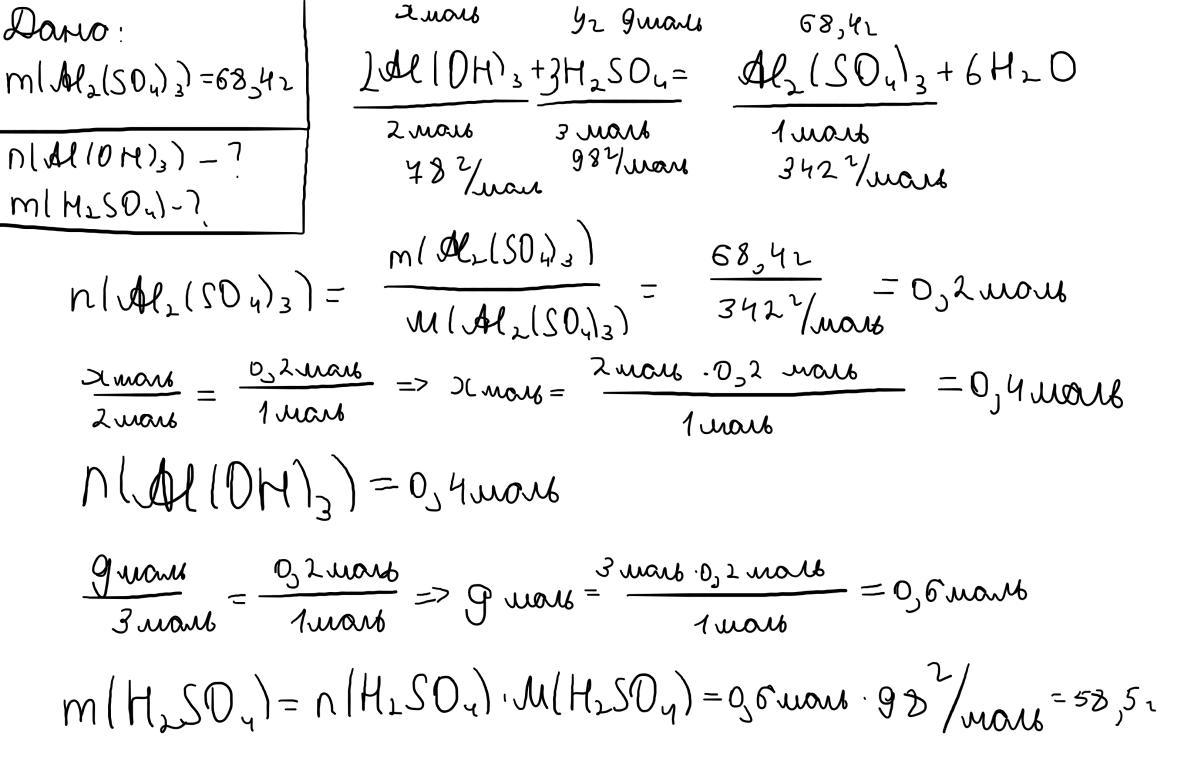 Дано:
m(Al₂(SO₄)₃)=68,4г
n(Al(OH)₃) – ?
m(H₂SO₄)-?
x моль yг gмоль 68,4г
2Al(OH)₃+3H₂SO₄= Al₂(SO₄)₃+6H₂O
2моль 3 моль 1моль
78 г/мол 98г/моль 342 г/моль
n(Al₂(SO₄)₃)= m(Al₂(SO₄)₃)/M(Al₂(SO₄)₃) = 68,4г/342 г/моль =0,2моль
xмоль/2моль = 0,2моль/1моль => xмоль= 2моль·0,2 моль/1моль =0,4моль
n(Al(OH)₃)=0,4моль
gмоль/3моль = 0,2моль/1моль => g моль= 3моль·0,2моль/1моль =0,6моль
m(H₂SO₄)=n(H₂SO₄)·M(H₂SO₄)=0,6моль·98 г/моль=58,5г